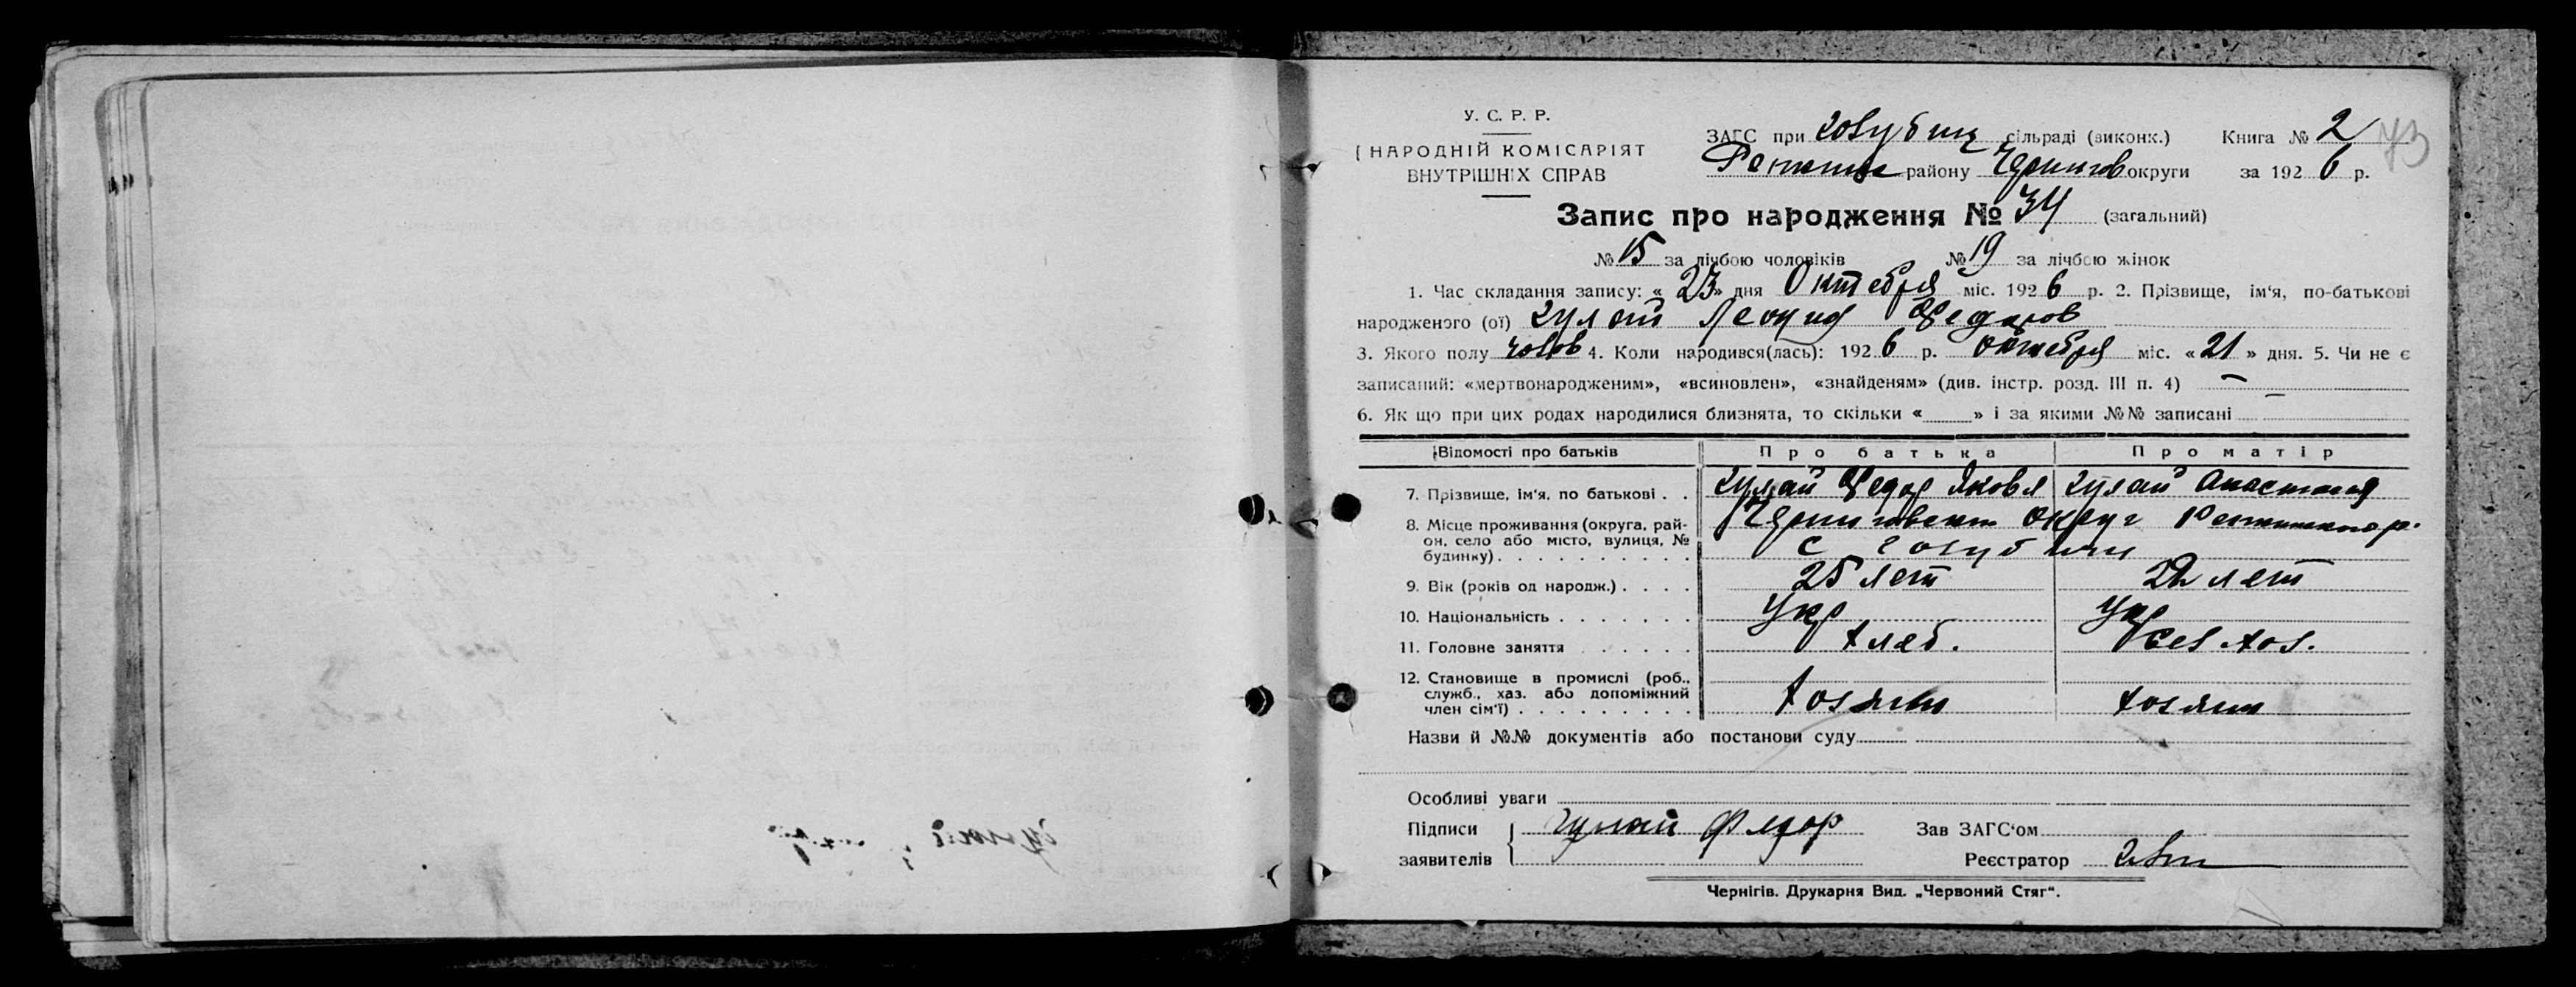 У. С. Р. Р.
НАРОДНІЙ КОМІСАРІЯТ
ВНУТРІШНІХ СПРАВ
ЗАГС при Голубич сільраді (виконк.) Книга № 2 73
району Чернигов округи за 1926 р.
Запис про народження № 34 (загальний)
№ 15 за лічбою чоловіків № 19 за лічбою жінок
1. Час складання запису: « 23 » дня Октебря міс. 1926 р. 2. Прізвище, ім'я, по-батькові
народженого (ої) Гулай Леонид Федоров
3. Якого полу Чолов 4. Коли народився(лась): 1926 р. октебря міс. « 21 » дня. 5. Чи не є
записаний: «мертвонародженим», «всиновлен», «знайденям» (див. інстр. розд. III п. 4) —
6. Як що при цих родах народилися близнята, то скільки « » і за якими №№ записані —
Відомості про батьків Про батька Про матір
7. Прізвище, ім'я, по батькові . . Гулай Федор Яковл Гулай Анастасия
8. Місце проживання (округа, рай-
он, село або місто, вулиця, №
будинку) . . . . . . . . . .
Черниговской округ
с Голубичи
9. Вік (років од народж.) . . . . 25 лет 22 лет
10. Національність . . . . . . . Укр Укр
11. Головне заняття . . . . . . Хлеб.
12. Становище в промислі (роб.,
служб., хаз. або допоміжний
член сім'ї) . . . . . . . . . Хозяин
Назви й №№ документів або постанови суду
Особливі уваги
Підписи Гулай Федор Зав ЗАГС'ом
заявителів Реєстратор
Чернігів. Друкарня Вид. „Червоний Стяг“.